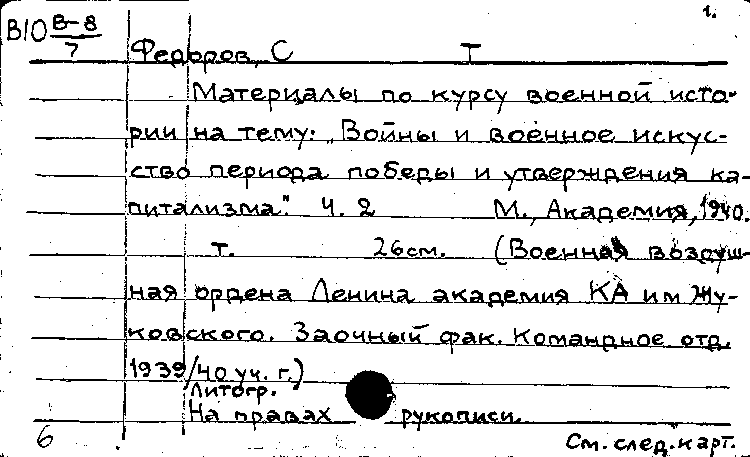 1.
В10 В-8/7
Федоров, С Т
Материалы по курсу военной исто-
рии на тему: „Войны и военное искус-
ство периода победы и утверждения ка-
питализма". Ч. 2 М., Академия, 1940.
т. 26см. (Военная воздуш-
ная ордена Ленина академия КА им Жу-
ковского. Заочный фак. Командное отд.
1939/40 уч. г.)
Литогр.
На правах рукописи.
6 См. след. карт.